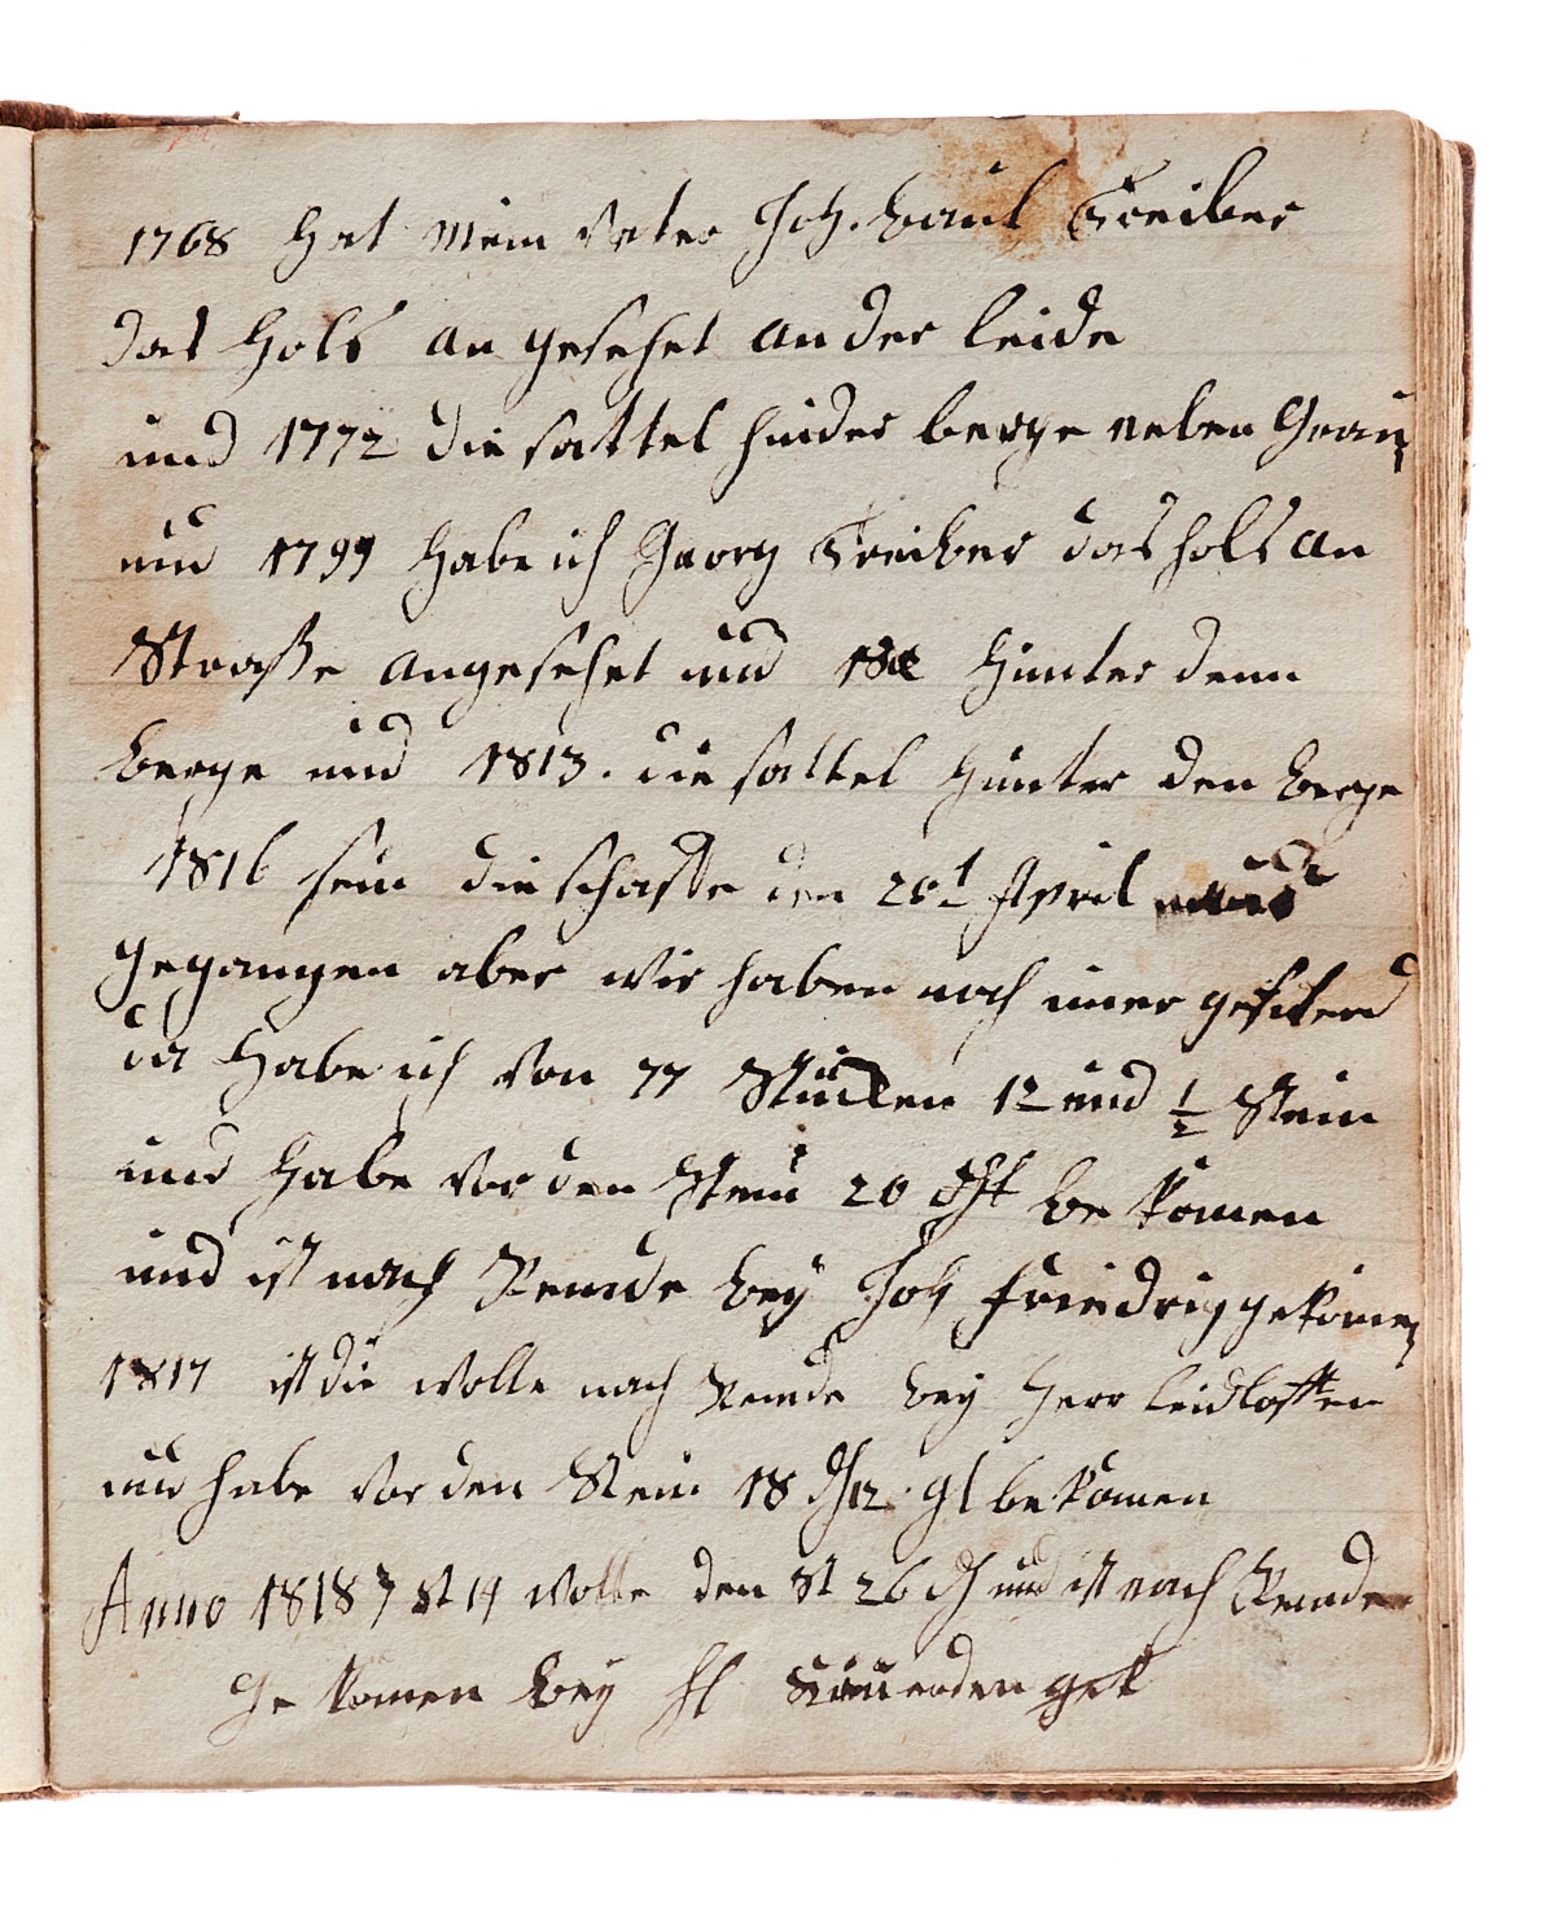 1768 Hat Mein Vater Joh. Paul Treiber
das Hols an gesehet an der leide
und 1772 die sattel hinder berge neben Graun
und 1799 Habe ich Georg Treiber das hols an
Straße angesehet und Hinter denn
berge und 1813. die sattel Hinter den berge
1816 sein die schaffe den 28t April
gegangen aber wir haben noch imer gefiterd
da Habe ich Von 77 Stücken 12 und ½ Stein
und Habe vor den Stein 20 be komen
und ist nach Remde bey Joh Friedrig gekomen
1817 ist die Wolle nach Remde bey Herr Leidloffen
und habe vor den Stein 18 12 gl bekomen
Anno 1818 7 St 14 Wolle den St 26 und ist nach Remde
Ge komen bey gek